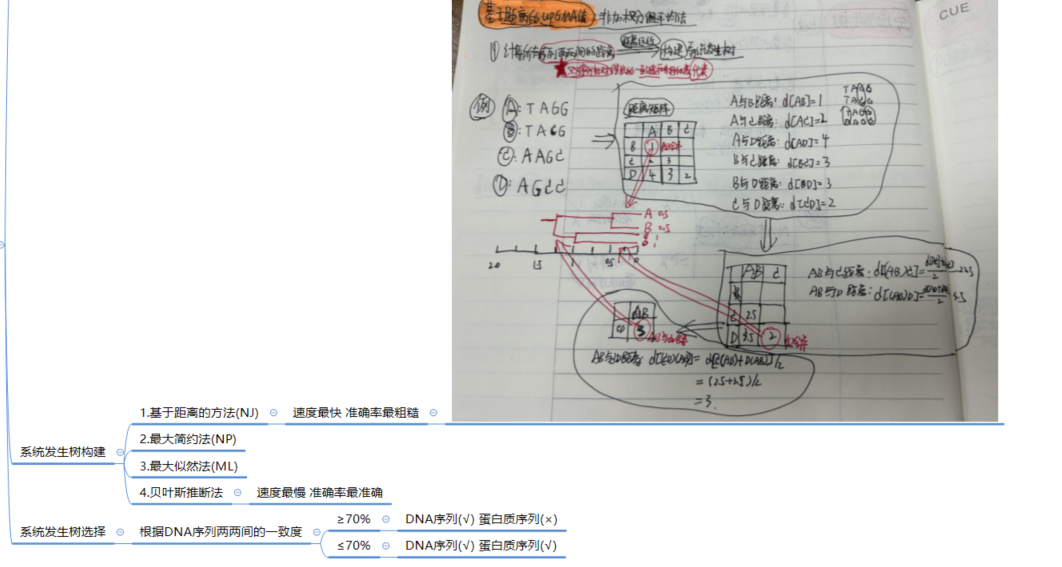 基于距离的UPGMA法:非加权分组平均法
CUE
① 计算所有序列两两间的距离
距离远近
构建系统发生树
例
A: TAGG
B: TACG
C: AAGC
D: AGCC
距离矩阵
A B C
B 1
C 2 3
D 4 3 2
A与B距离: d[AB]=1
A与C距离: d[AC]=2
A与D距离: d[AD]=4
B与C距离: d[BC]=3
B与D距离: d[BD]=3
C与D距离: d[CD]=2
A 0.5
B 0.5
2.0 1.5 1 0.5 0
AB C
C 2.5
D 3.5 2
AB与C距离: d[(AB)C]= 2 =2.5
AB与D距离: d[(AB)D]= 2 3.5
AB
CD 3
=(2.5+3.5)/2
=3.
系统发生树构建
1.基于距离的方法(NJ)
速度最快 准确率最粗糙
2.最大简约法(NP)
3.最大似然法(ML)
4.贝叶斯推断法
速度最慢 准确率最准确
系统发生树选择
根据DNA序列两两间的一致度
≥70%
DNA序列(√) 蛋白质序列(×)
≤70%
DNA序列(√) 蛋白质序列(√)